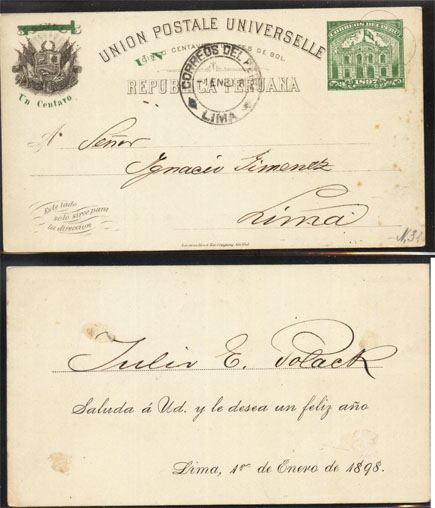 UNION POSTALE UNIVERSELLE
CORREOS DEL PERU
1897
UN
REPUBLICA PERUANA
Un Centavo
CORREOS DEL PERU
1 ENE 98
LIMA
Señor
Ignacio Jimenez
Lima
Este lado
solo sirve para
la direccion
Julio E. Polack
Saluda á Ud. y le desea un feliz año
Lima, 1o de Enero de 1898.